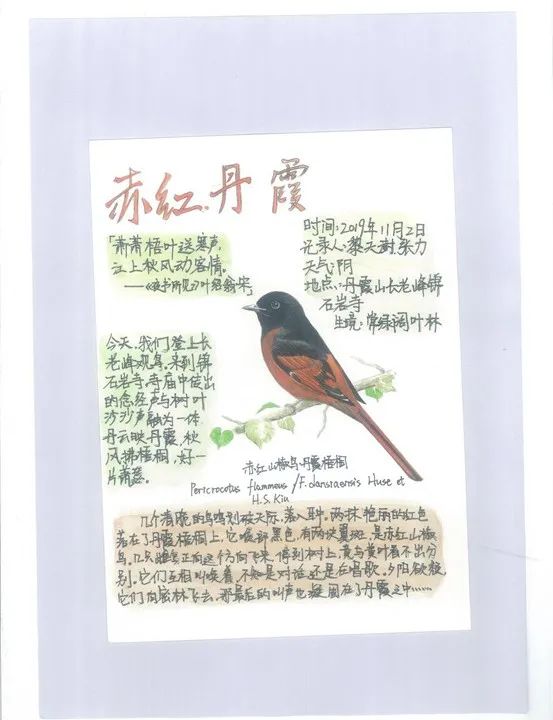 赤红.丹霞
「萧萧梧叶送寒声,
江上秋风动客情。
——《夜书所见》叶绍翁宋
时间:2019年11月2日
记录人:黎天澍,张力
天气:阴
地点:丹霞山长老峰锦
石岩寺
生境:常绿阔叶林
今天,我们登上长
老峰观鸟,来到锦
石岩寺,寺庙中传出
的念经声与树叶
沙沙声融为一体
丹云映丹霞,秋
风拂梧桐,好一
片萧瑟。
赤红山椒鸟.丹霞梧桐
Pericrocotus flammeus /F.danxiaensis Hsue et
H.S.Kiu
几个清脆的鸟鸣划破天际,落入耳中。两抹艳丽的红色
落在了丹霞梧桐上,它喉部黑色,有两块翼斑,是赤红山椒
鸟,几只雌鸟正向这个方向飞来,停到树上,黄与黄叶看不出分
别。它们互相叫唤着,不知是对话还是在唱歌。夕阳欲颓
它们向密林飞去,那最后的叫声也凝固在了丹霞之中……